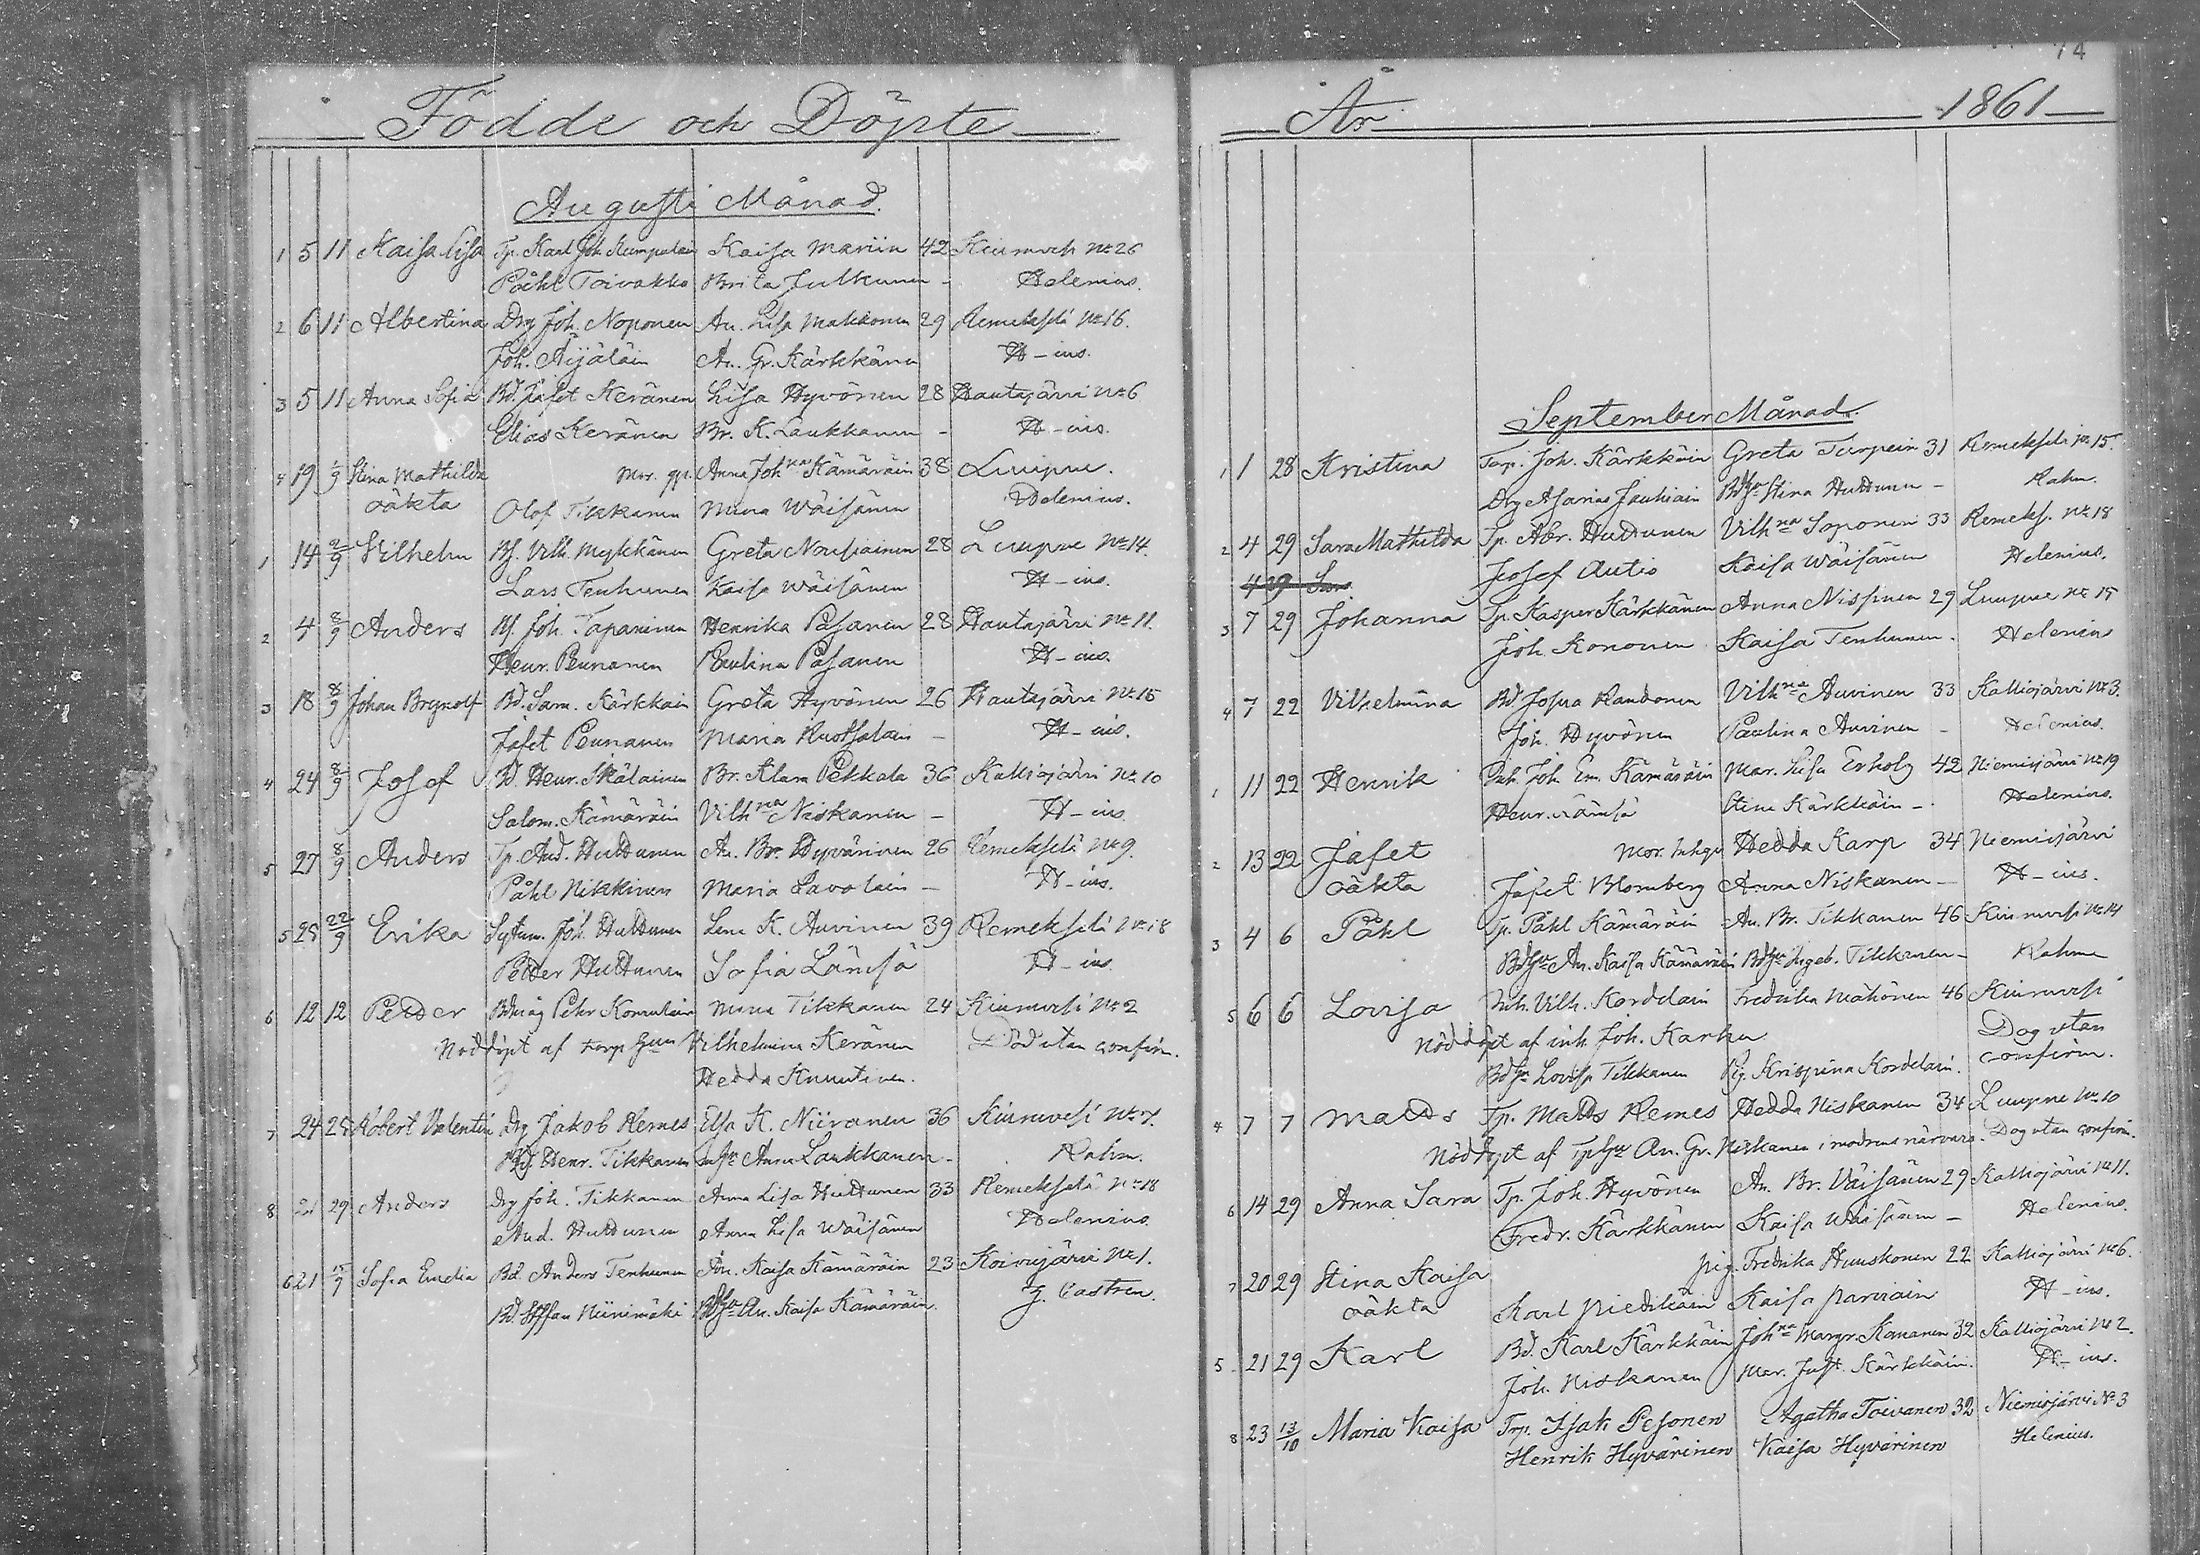 Födde och Döpte
Augusti Månad.
1 5 11 Kaisa Lisa Tp. Karl Joh. Kumpulain Kaisa Mariin 42 Kiuruvesi No 26
Påhl Toivakko Brita Julkunen - Helenius.
2 6 11 Albertina Drg Joh. Noponen An. Lisa Makkonen 29 Remekselä No 16.
Joh. Äijäläin An. Gr. Kärkkänen H-ius.
3 5 11 Anna Sofia Bd. Jafet Keränen Lisa Hyvönen 28 Hautajärvi No 6
Elias Keränen Br. K. Laukkanen - H-ius.
4 19 1/9 Stina Mathilda Mor. gp. Anna Johna Kämäräin 38 Luupue.
oäkta Olof Tikkanen Mina Wäisänen Helenius.
1 14 2/9 Vilhelm Bf. Vilh. Mykkänen Greta Nousiainen 28 Luupue No 14.
Lars Tenhunen Kaisa Wäisänen H-ius.
2 4 8/9 Anders Bf. Joh. Tapaninen Henrika Pasanen 28 Hautajärvi No 11.
Henr. Pennanen Paulina Pasanen H-ius.
3 18 8/9 Johan Brynolf Bd. Sam. Kärkkäin Greta Hyvönen 26 Hautajärvi No 15
Jafet Pennanen Maria Ruotsalain - H-ius.
4 24 8/9 Josef Bd. Henr. Ikäläinen Br. Klara Pekkala 36 Kalliojärvi No 10
Salom. Kämäräin Vilhna Niskanen - H-ius
5 27 8/9 Anders Tp. And. Huttunen An. Br. Hyvärinen 26 Remekselä No 9.
Påhl Nikkinen Maria Savolain - H-ius.
5 25 22/9 Erika Sytnm. Joh. Huttunen Lena K. Auvinen 39 Remekselä No 18
Petter Huttunen Sofia Länsä H-ius
6 12 12 Petter Bdmåg Petr Kornulain Mina Tikkanen 24 Kiuruvesi No 2
Nöddöpt af torp Gun Vilhelmina Keränen Död utan confirm.
Hedda Knuutinen.
7 24 25 Robert Valentin Drg Jakob Remes Elsa K. Niiranen 36 Kiuruvesi No 7.
Henr. Tikkanen Anna Laukkanen - Rahm.
8 21 29 Anders Drg Joh. Tikkanen Anna Lisa Huttunen 33 Remekselä No 18
And. Huttunen Anna Lisa Wäisänen Helenius.
6 21 15/9 Sofia Emelia Bd. Anders Tenhunen An. Kaisa Kämäräin 23 Koivujärvi No 1.
Bd. Steffan Niinimäki BdGu An. Kaisa Kämäräin. J. Castren.
74
År 1861
September Månad.
1 1 28 Kristina Torp. Joh. Kärkkäin Greta Turpein 31 Remekselä No 15.
Drg Asarias Jauhiain BdGu Stina Huttunen - Rahm.
2 4 29 Sara Mathilda Tp. Abr. Huttunen Vilhna Soponen 33 Remeks. No 18
4 29 Sar Josef Autio Kaisa Wäisänen Helenius.
3 7 29 Johanna Tp. Kasper Kärkkänen Anna Nissinen 29 Luupue No 15
Joh. Kononen Kaisa Tenhunen. Helenius
4 7 22 Vilhelmina Bd Josua Raudonen Vilhna Auvinen 33 Kalliojärvi No 3.
Joh. Hyvönen Paulina Auvinen - Helenius.
1 11 22 Henrik Inh. Joh. Em. Kämäräin Mar. Lisa Erholz 42 Niemisjärvi No 19
Henr. Länsä Stina Kärkkäin - Helenius.
2 13 22 Jafet Mor. Inhgu Hedda Karp 34 Niemisjärvi
oäkta Jafet Blomberg Anna Niskanen - H-ius.
3 4 6 Påhl Tp. Påhl Kämäräin An. Br. Tikkanen 46 Kiuruvesi No 14
BdGu An. Kaisa Kämäräin BdGu Ingeb. Tikkanen - Rahm
5 6 6 Lovisa Inh. Vilh. Kordelain Fredrika Mähönen 46 Kiuruvesi
Nöddöpt af inh. Joh. Karhu Dog utan
BdGu Lovisa Tikkanen Pig. Krispina Kordelain. confirm.
4 7 7 Matts Tp. Matts Remes Hedda Niskanen 34 Luupue No 10
Nöddöpt af TpGu An. Gr. Niskanen i modrens närvaro. Dog utan confirm.
6 14 29 Anna Sara Tp. Joh. Hyvönen An. Br. Väisänen 29 Kalliojärvi No 11.
Fredr. Kärkkänen Kaisa Wäisänen - Helenius.
7 20 29 Stina Kaisa pig. Fredrika Huuskonen 22 Kalliojärvi No 6.
oäkta Karl Piedikäin Kaisa Parviain H-ius.
5 21 29 Karl Bd. Karl Kärkkäin Johna Margr. Kananen 32 Kalliojärvi No 2.
Joh. Niskanen Mar. Just. Kärkkäin. H-ius.
8 23 13/10 Maria Kaisa Trp. Isak Pesonen Agatha Toivanen 32 Niemisjärvi No 3
Henrik Hyvärinen Kaisa Hyvärinen Helenius.